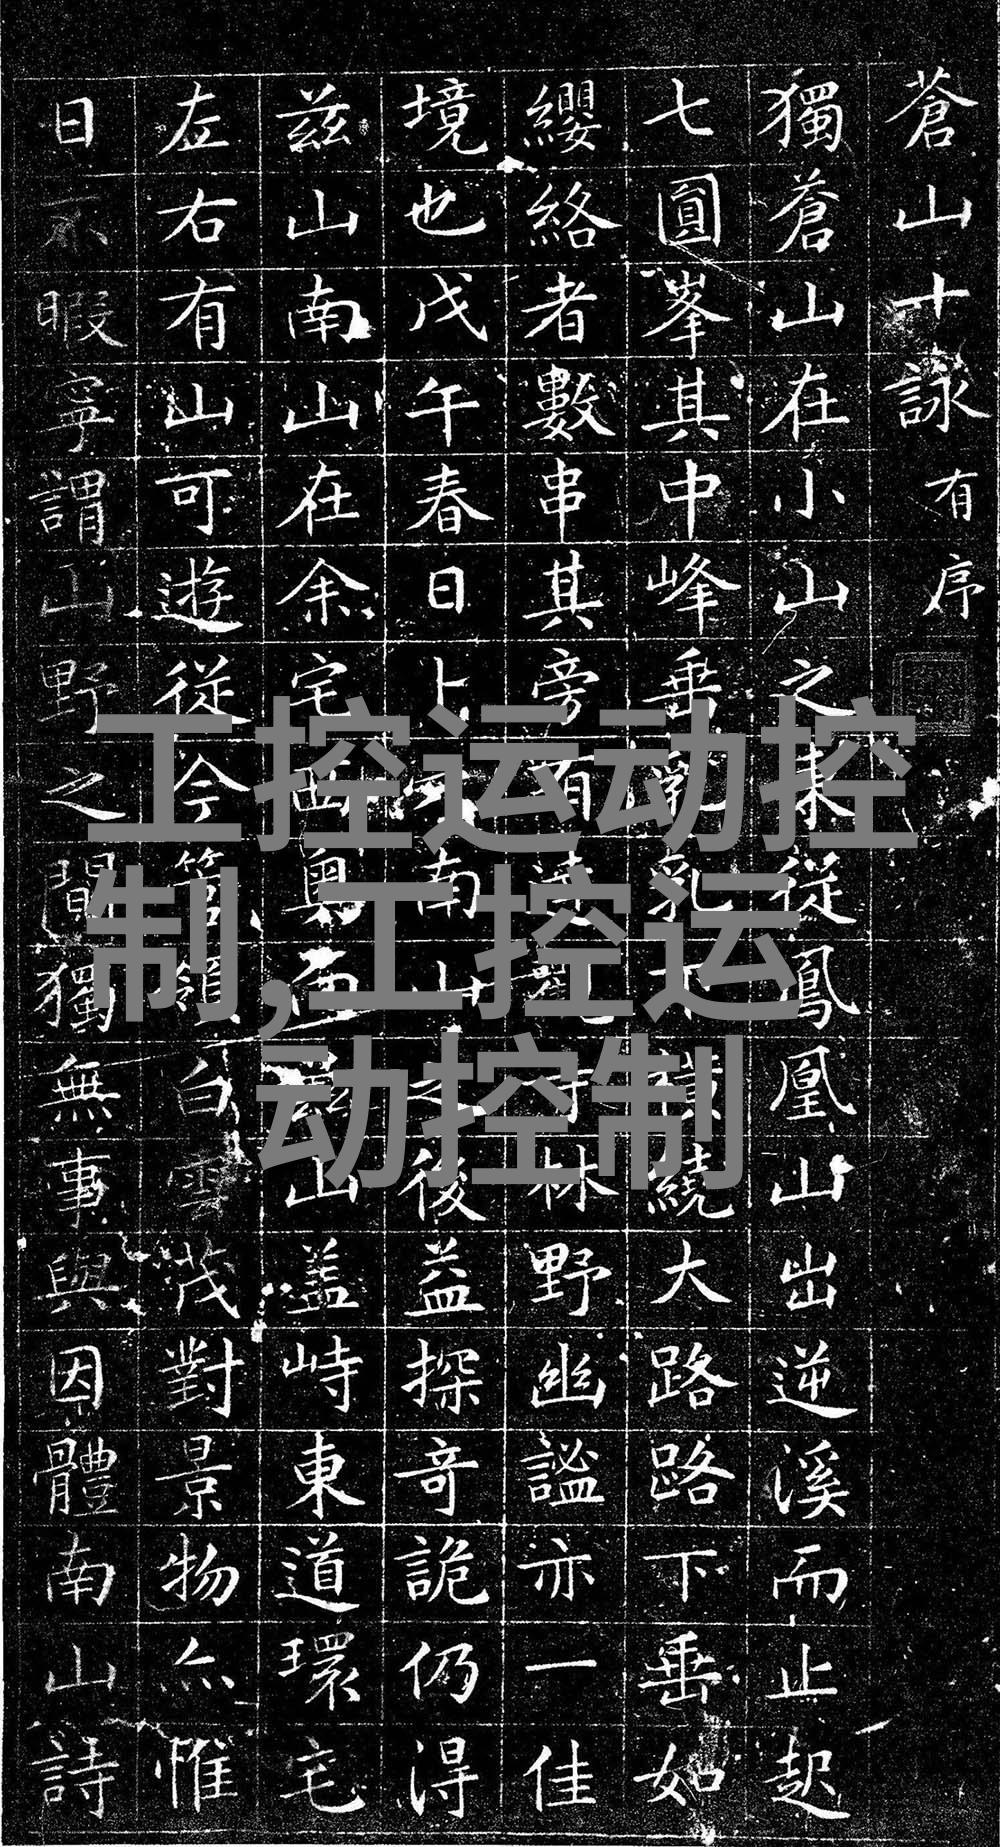 蒼山十詠 有序
獨蒼山在小山之東從鳳凰山出逆溪而止起
七圓峯其中峰垂乳下横繞大路路下垂如
纓絡者數串其旁有林野幽謐亦一佳
境也戊午春日上南山之後益探奇詭仍得
茲山南山在余宅西與山蓋峙東道環宅
左右有山可遊從今管領白雲茂對景物亦惟
日不暇寧謂山野之間獨無事與因體南山詩
工控运动控
制,工控运
动控制